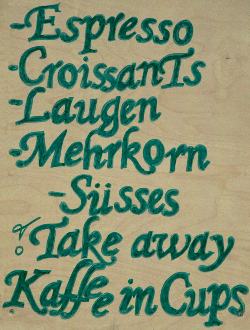 -Espresso
-Croissants
-Laugen
-Mehrkorn
-Süsses
! Take away
Kaffee in Cups